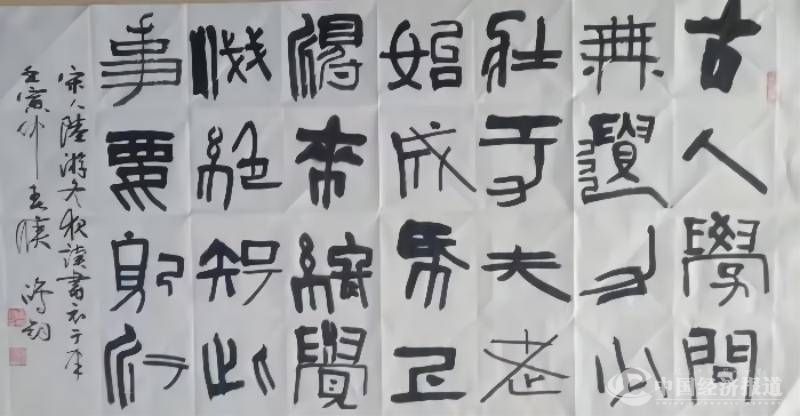 古人學問
無遺力少
壯工夫老
始成帋上
得來終覺
淺絕知此
事要躬行
宋人陸游冬夜讀書示子聿
壬寅仲春
中国经济报道